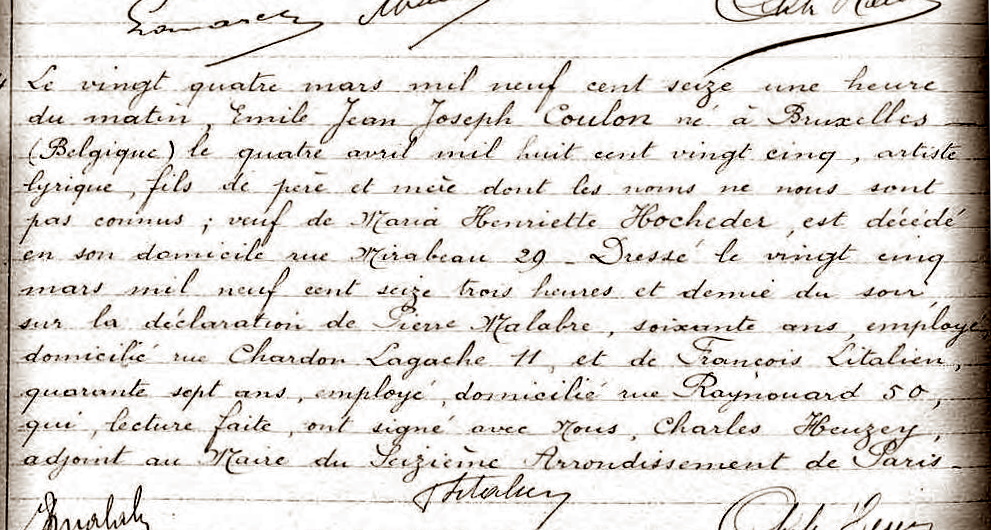 Le vingt quatre mars mil neuf cent seize une heure
du matin, Emile Jean Joseph Coulon né à Bruxelles
(Belgique) le quatre avril mil huit cent vingt cinq, artiste
lyrique, fils de père et mère dont les noms ne nous sont
pas connus ; veuf de Maria Henriette Hocheder, est décédé
en son domicile rue Mirabeau 29 _ Dressé le vingt cinq
mars mil neuf cent seize trois heures et demie du soir,
sur la déclaration de Pierre Malabre, soixante ans, employé,
domicilié rue Chardon Lagache 11, et de François Litalien,
quarante sept ans, employé, domicilié rue Raynouard 50,
qui, lecture faite, ont signé avec Nous, Charles Heuzey,
adjoint au Maire du Seizième Arrondissement de Paris _